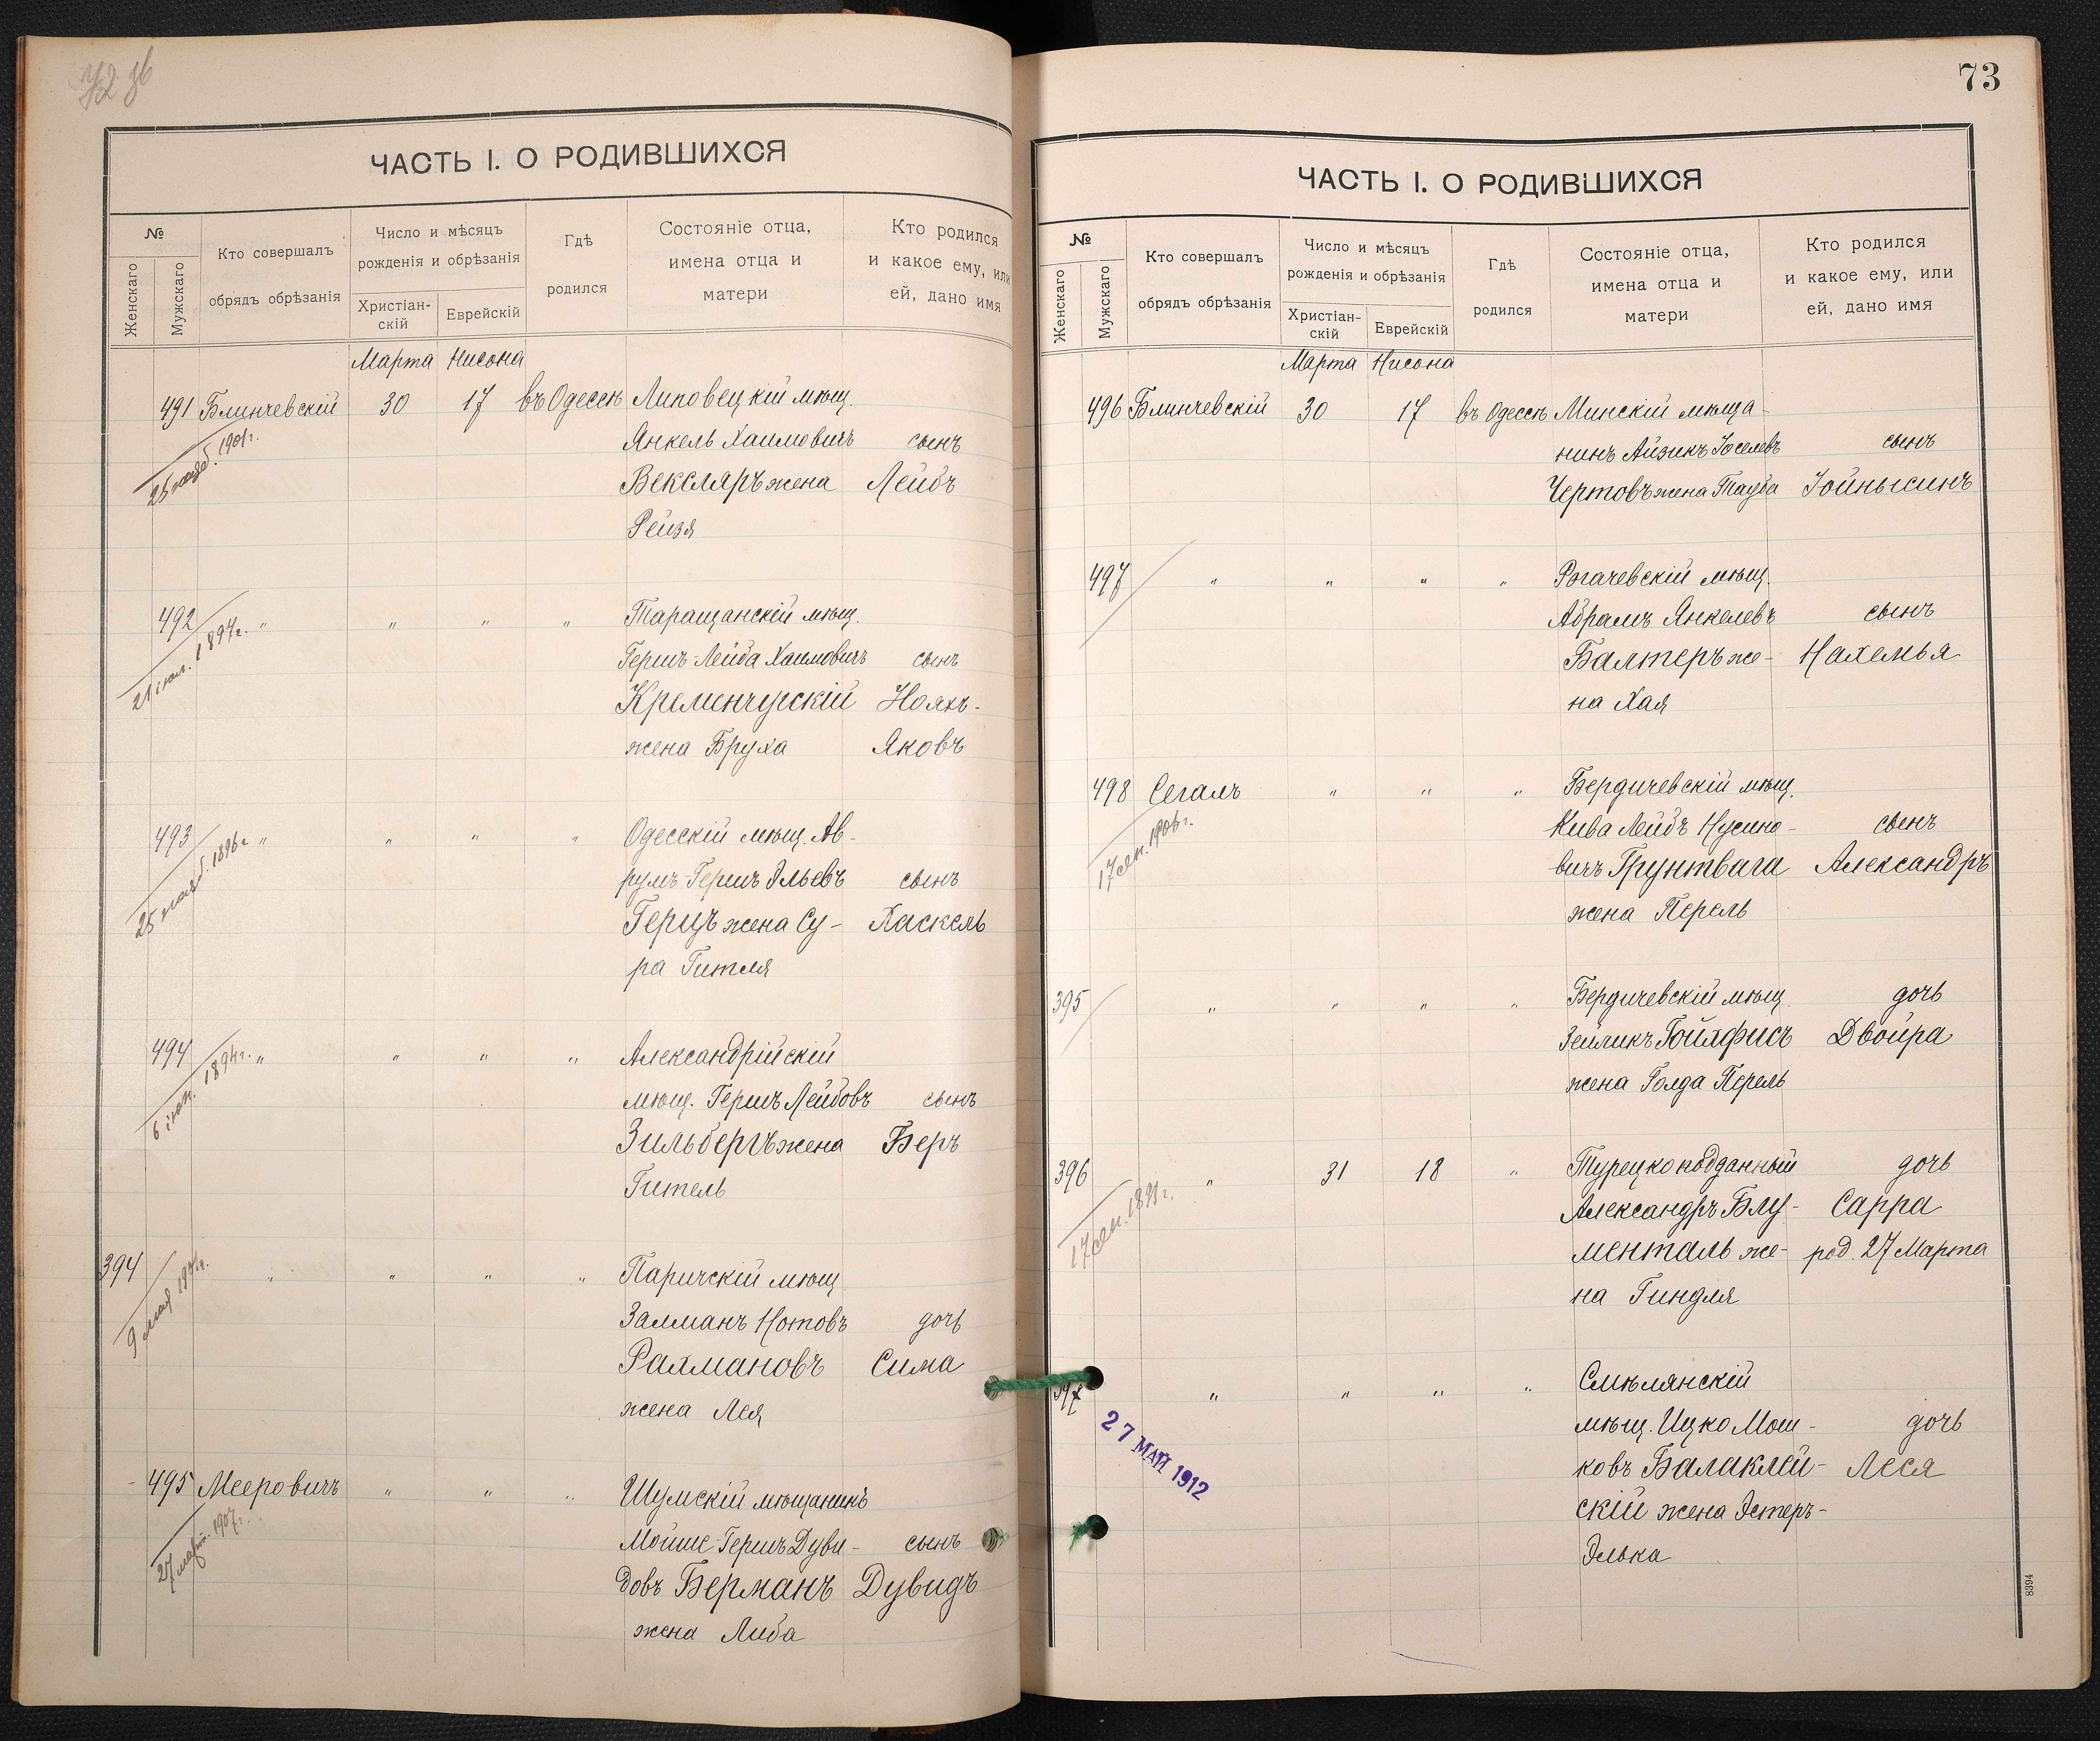 ЧАСТЬ I. О РОДИВШИХСЯ
№
Женскаго
Мужскаго
Кто совершалъ
обрядъ обрѣзанія
Число и мѣсяцъ
рожденія и обрѣзанія
Христіан-
скій
Еврейскій
Гдѣ
родился
Состояніе отца,
имена отца и
матери
Кто родился
и какое ему, или
ей, дано имя
Марта Нисона
491 Блинчевскій 30 17 въ Одессѣ Липовецкій мѣщ.
Янкель Хаимовичъ сынъ
Вексляръ жена Лейбъ
Рейзя
25 нояб. 1901г.
492 " " " " Таращанскій мѣщ.
Гершъ-Лейба Хаимовичъ сынъ
Кременчугскій Нояхъ-
жена Бруха Яковъ
21 1894г.
493 " " " " Одесскій мѣщ. Ав-
румъ-Гершъ Эльевъ сынъ
Герцъ жена Су- Хаскель
ра Гителя
25 нояб. 1896г.
494 " " " " Александрійскій
мѣщ. Гершъ Лейбовъ сынъ
Зильбергъ жена Беръ
Гитель
6 1894г.
394 " " " " Паричскій мѣщ.
Залманъ Нотовъ дочь
Рахмановъ Сима
жена Лея
9 мая
495 Мееровичъ " " " Шумскій мѣщанинъ
Мойше-Гершъ Дуви- сынъ
довъ Берманъ Дувидъ
жена Либа
27 март. 1907г.
73
ЧАСТЬ I. О РОДИВШИХСЯ
№
Женскаго
Мужскаго
Кто совершалъ
обрядъ обрѣзанія
Число и мѣсяцъ
рожденія и обрѣзанія
Христіан-
скій
Еврейскій
Гдѣ
родился
Состояніе отца,
имена отца и
матери
Кто родился
и какое ему, или
ей, дано имя
Марта Нисона
496 Блинчевскій 30 17 въ Одессѣ Минскій мѣща-
нинъ Айзикъ Іоселевъ сынъ
Чертовъ жена Тауба Іойнысинъ
497 " " " " Рогачевскій мѣщ.
Абрамъ Янкелевъ сынъ
Балтеръ же- Нахемья
на Хая
498 Сегалъ " " " Бердичевскій мѣщ.
Кива Лейбъ Нусино- сынъ
вичъ Грунтвага Александръ
жена Перель
17 сен. 1906г.
395 " " " " Бердичевскій мѣщ. дочь
Зейликъ Гойлфисъ Двойра
жена Голда Перель
396 " 31 18 " Турецкоподданный дочь
Александръ Блу- Сарра
менталь же- род. 27 Марта
на Гиндля
17 сен. 1891г.
" " " " Смѣлянскій
мѣщ. Ицко Мош- дочь
ковъ Балаклей- Леся
скій жена Эстеръ-
Элька
27 МАЙ 1912
8394